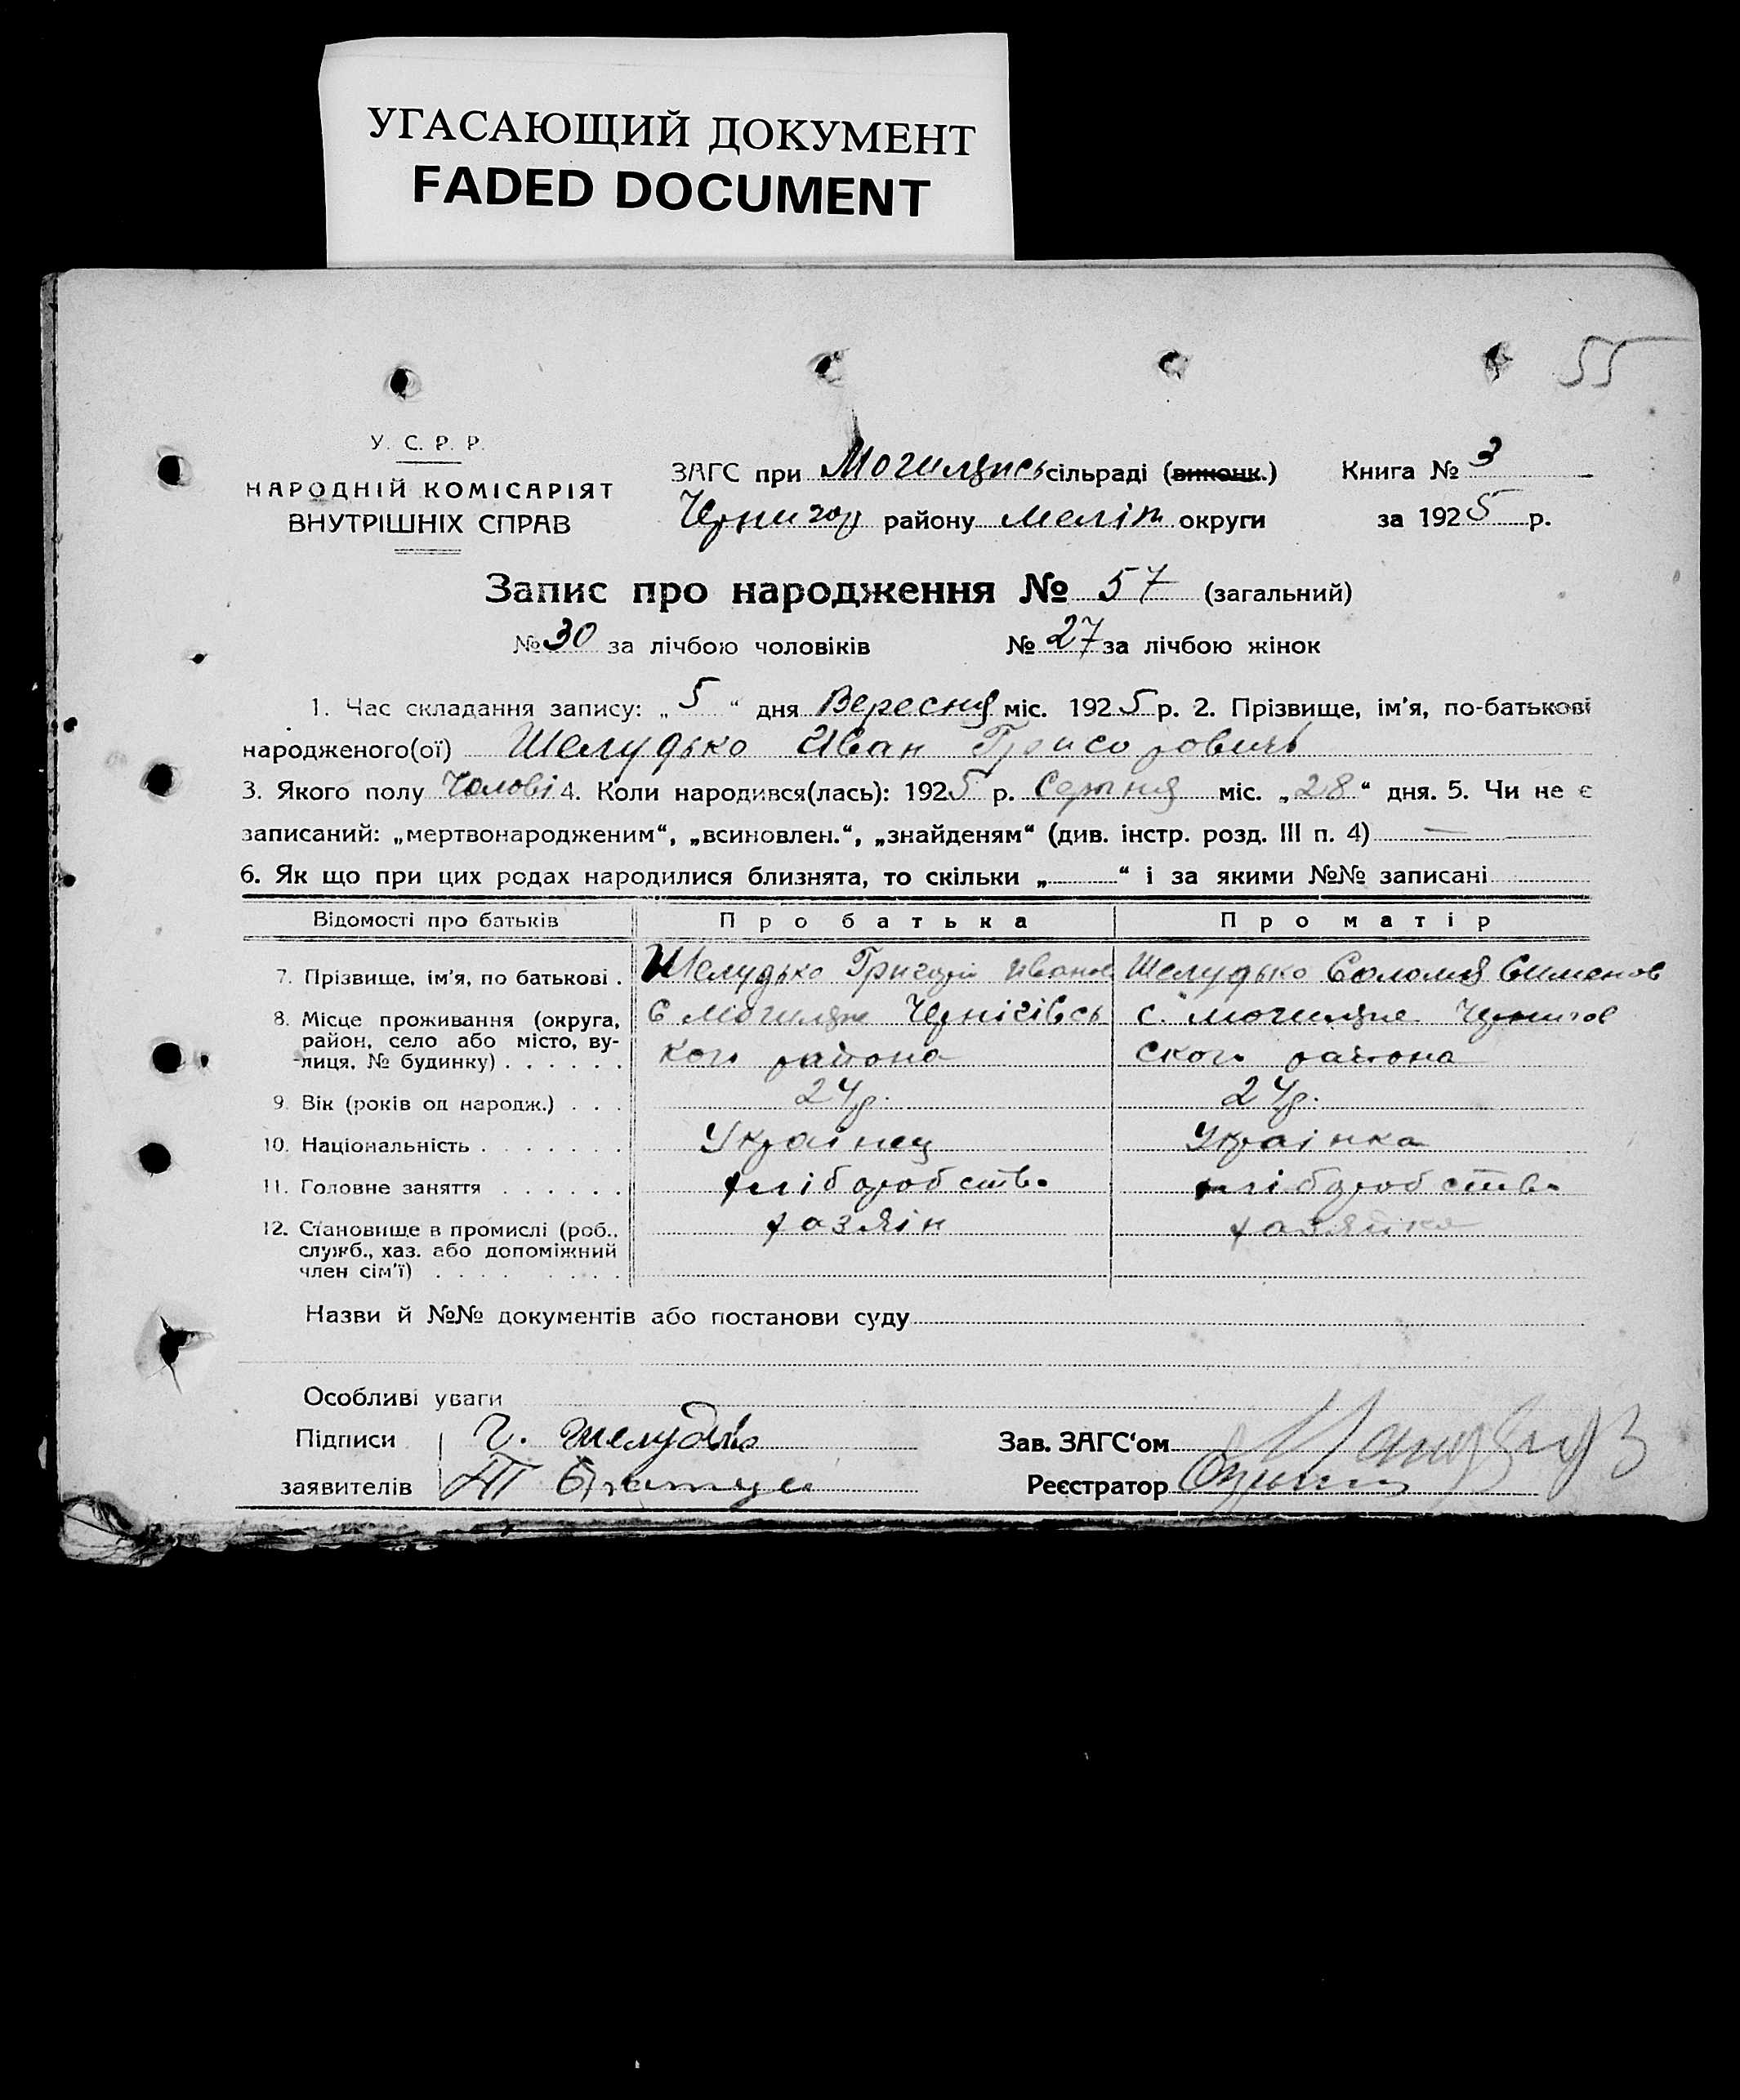 УГАСАЮЩИЙ ДОКУМЕНТ
FADED DOCUMENT
55
У. С. Р. Р.
НАРОДНІЙ КОМІСАРІЯТ
ВНУТРІШНІХ СПРАВ
ЗАГС при Могилянсь сільраді (виконк.) Книга № 3
Чернигор району Меліт округи за 1925 р.
Запис про народження № 57 (загальний)
№ 30 за лічбою чоловіків № 27 за лічбою жінок
1. Час складання запису: „5“ дня Вересня міс. 1925 р. 2. Прізвище, ім'я, по-батькові
народженого(ої) Шелудько Иван Григоровичь
3. Якого полу Чолові 4. Коли народився(лась): 1925 р. Серпня міс. „28“ дня. 5. Чи не є
записаний: „мертвонародженим“, „всиновлен.“, „знайденям“ (див. інстр. розд. III п. 4) —
6. Як що при цих родах народилися близнята, то скільки „ “ і за якими №№ записані
Відомості про батьків Про батька Про матір
7. Прізвище, ім'я, по батькові . Шелудько Григорій Иванов Шелудько Соломія Сименов
8. Місце проживання (округа, район, село або місто, вулиця, № будинку) . . . . . . с Могиляне Чернігівсь с. Могиляне Чернигов
кого района ского района
9. Вік (років од народж.) . . . 24р. 24р.
10. Національність . . . . . . . Українец Українка
11. Головне заняття . . . . . . хліборобство хліборобство
12. Становище в промислі (роб., служб., хаз. або допоміжний член сім'ї) . . . . . . . . . хазяін хазяйка
Назви й №№ документів або постанови суду
Особливі уваги
Підписи Г. Шелудько Зав. ЗАГС'ом
заявителів Реєстратор